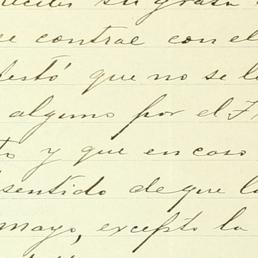 su grata
se contrae con el
festó que no se l
alguno por el F
to y que en caso
sentido de que la
mayo, excepto la